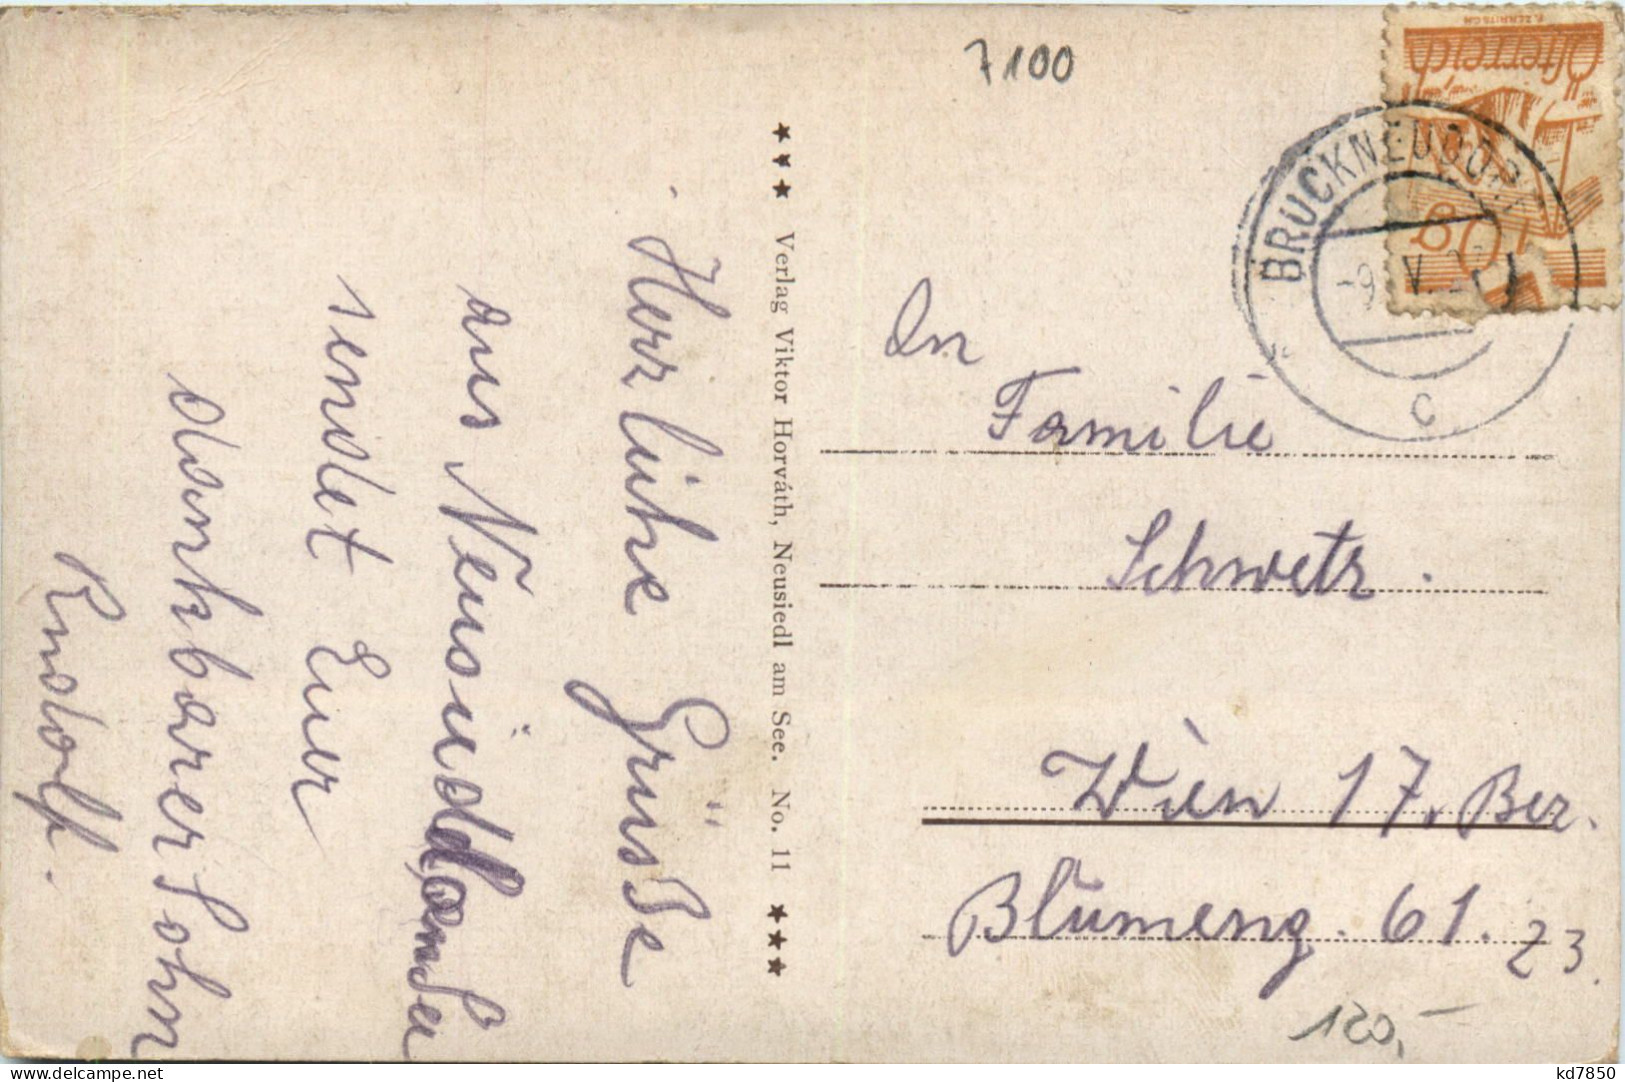 7100
F. ZERRITSCH
Österreich
10 g
BRUCKNEUDORF
-9. V. 2
c
★★★ Verlag Viktor Horváth, Neusiedl am See. No. 11 ★★★
Herzliche Grüsse
aus Neusiedl am See
sendet Euer
dankbarer Sohn
Rudolf.
An
Familie
Schwetz.
Wien 17. Bez.
Blumeng. 61. 23.
120,-
delcampe.net
kd7850